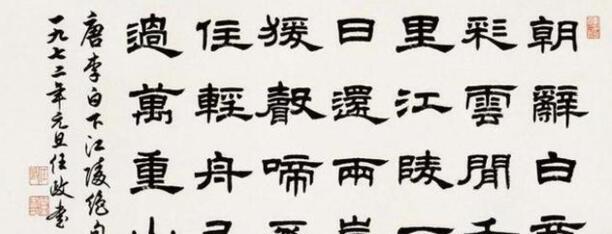 朝辭白帝
彩雲間千
里江陵一
日還兩岸
猨聲啼不
住輕舟已
過萬重山
唐李白下江陵絕句
一九七二年元旦任政書